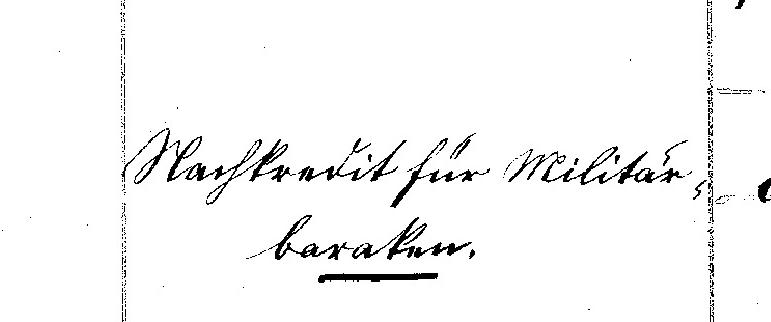 Nachkredit für Militär-
baraken.